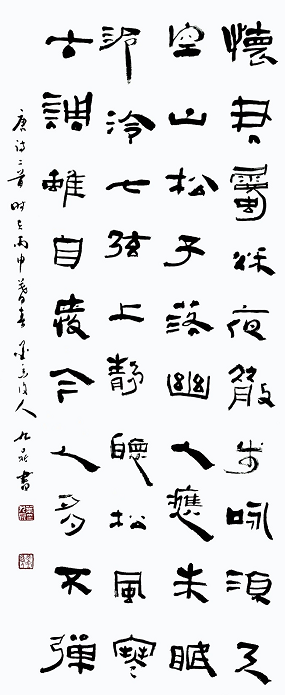 懷君屬秋夜散步咏涼天
空山松子落幽人應未眠
泠泠七弦上靜聽松風寒
古調雖自愛今人多不彈
唐诗二首時在丙申暮春人書